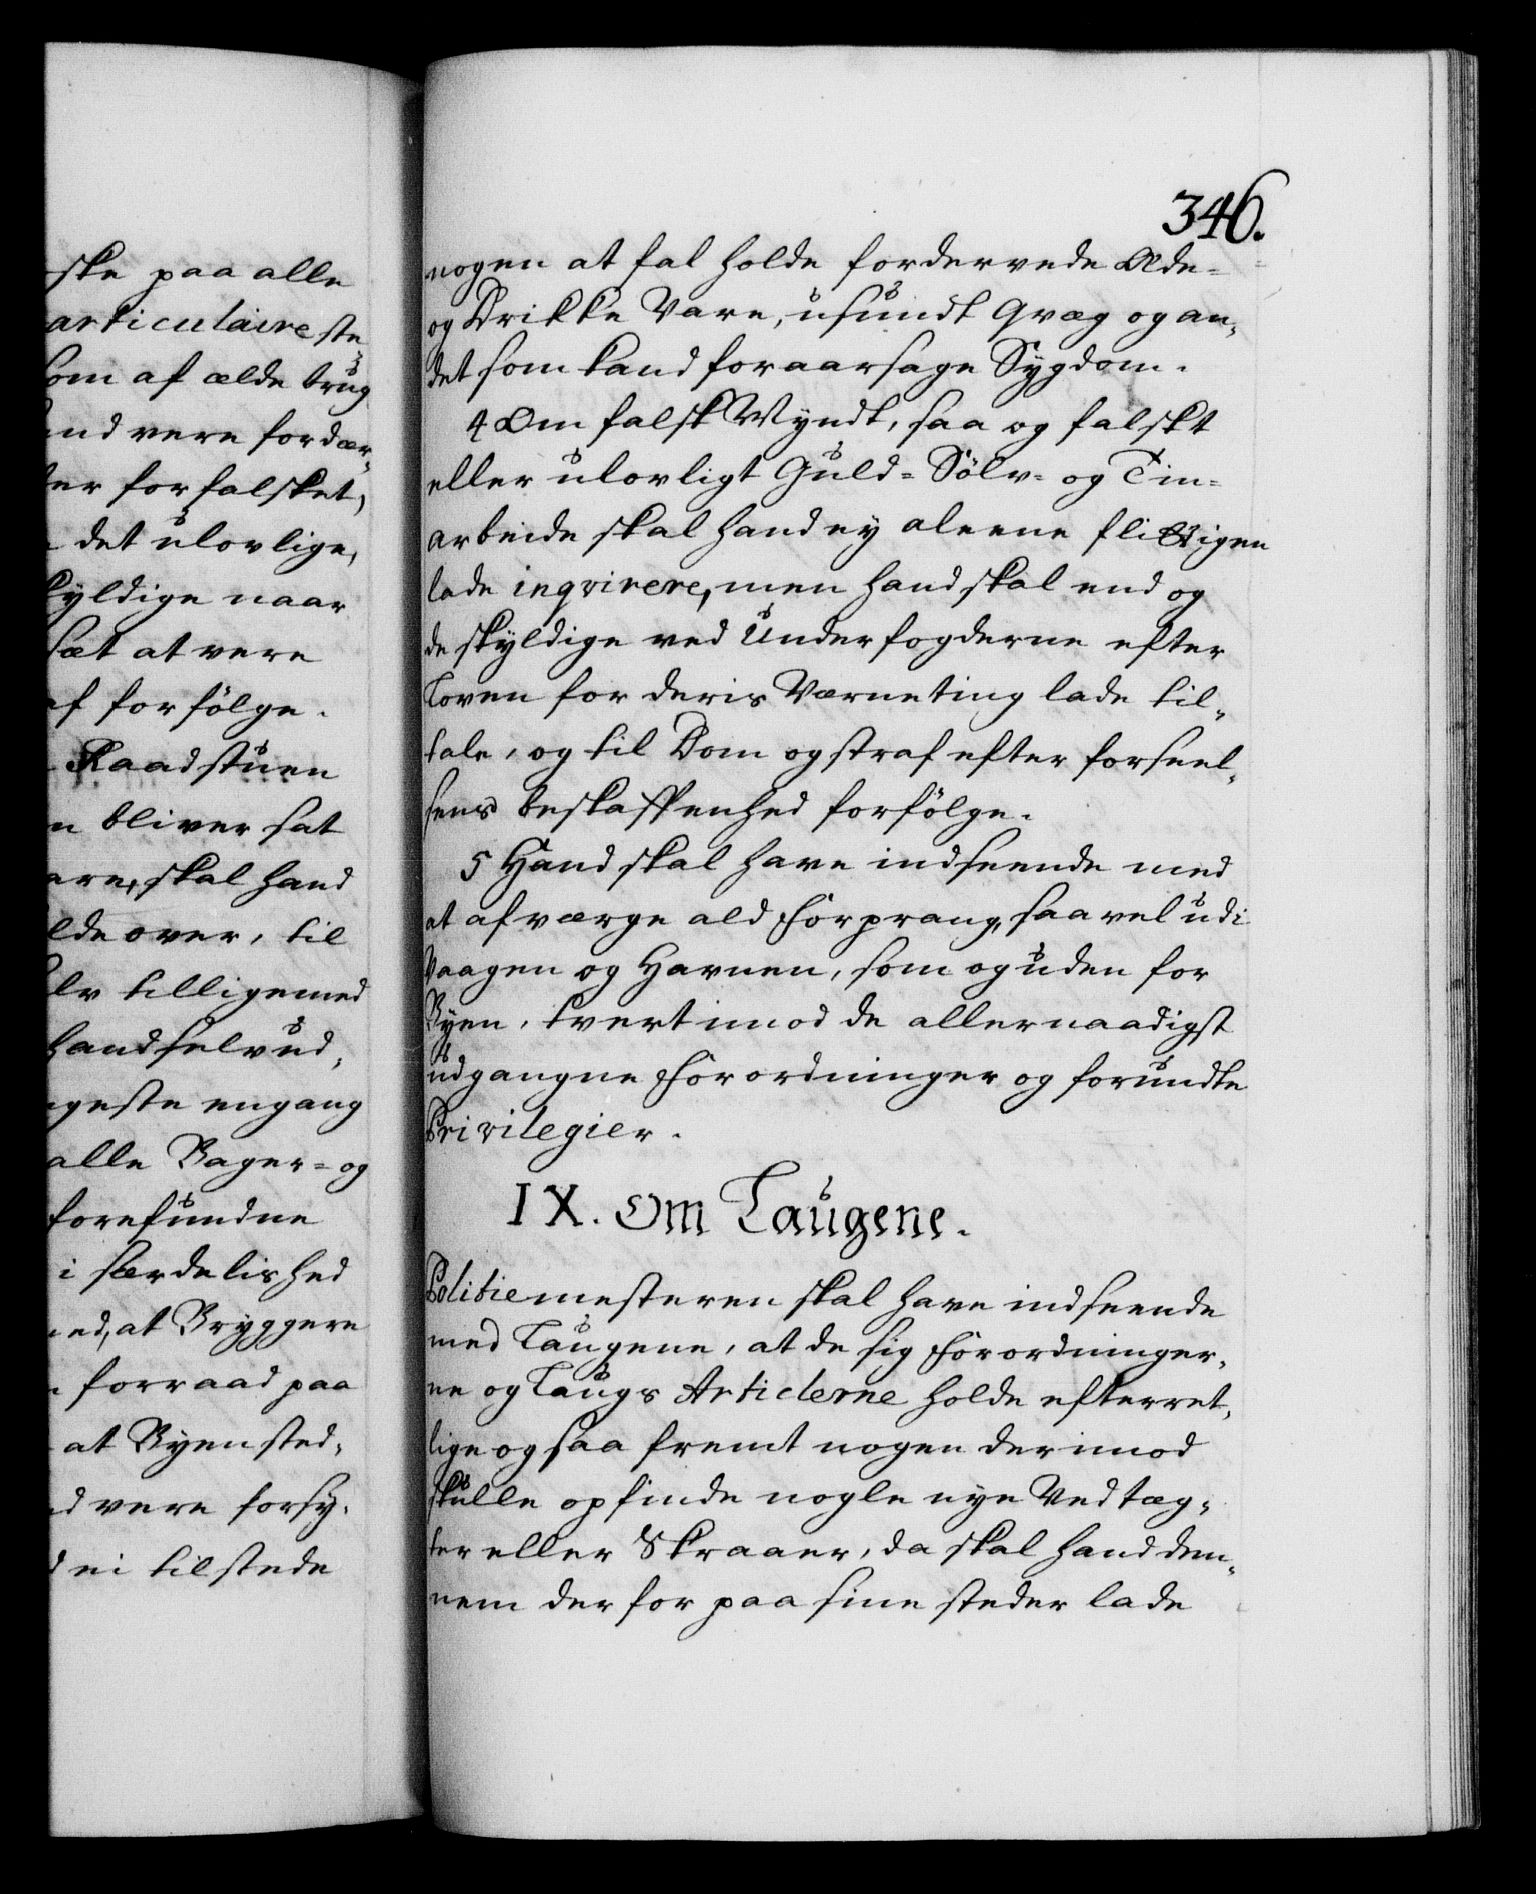 ske paa alle
articulaire ste¬
som af ælde brug
and vere fordær¬
ler forfalsket,
det ulovlige,
kyldige naar
sæt at vere
af forfölge.
Raadstuen
n bliver sat
are, skal hand
lde over, til
lv tilligemed
hand selv ud¬
geste engang
alle Bager- og
forefundne
i særdelished
ed, at Bryggere
forraad paa
at Byen sted¬
d vere forsÿ¬
ei tilstede
346.
nogen at fal holde fordervede Æde-
og Drikke Vare, usundt Qvæg og an¬
det som kand foraarsage Sygdom.
4 Om falsk Myndt, saa og falskt
eller ulovligt Guld- Sölv- og Tin-
arbeide skal hand ey aleene flittigen
lade inqvirere, men hand skal end og
de skyldige ved Underfogderne efter
Loven for deris Værneting lade til¬
tale, og til Dom og straf efter forseel¬
sens beskaffenhed forfölge.
5 Hand skal have indseende med
at afværge ald Forprang, saavel udi
Vaagen og Havnen, som og uden for
Byen, tvertimod de allernaadigst
udgangne Forordninger og forundte
Privilegier.
IX. Om Laugene.
Politiemesteren skal have indseende
med Laugene, at de sig Forordninger¬
ne og Laugs Articlerne holde efterret¬
lige og saa fremt nogen derimod
skulle opfinde nogle nye Vedtæg¬
ter eller Skraaer, da skal hand den¬
nem derfor paa sine steder lade